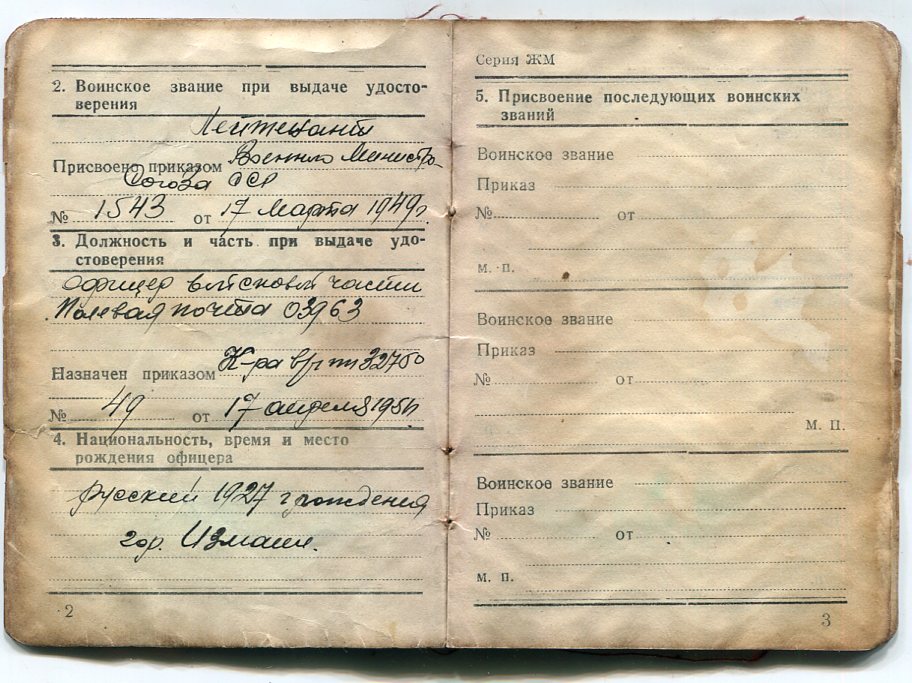 2. Воинское звание при выдаче удосто-
верения
Лейтенант
Присвоено приказом Военного Министра
Союза ССР
№ 1543 от 17 марта 1949г.
3. Должность и часть при выдаче удо-
стоверения
офицер войсковой части
Полевая почта 03963
Назначен приказом К-ра в/ч пп 32750
№ 49 от 17 апреля 1951г.
4. Национальность, время и место
рождения офицера
русский 1927 г рождения
гор. Измаил.
2
Серия ЖМ
5. Присвоение последующих воинских
званий
Воинское звание
Приказ
№ от
м. п.
Воинское звание
Приказ
№ от
М. П.
Воинское звание
Приказ
№ от
м. п.
3